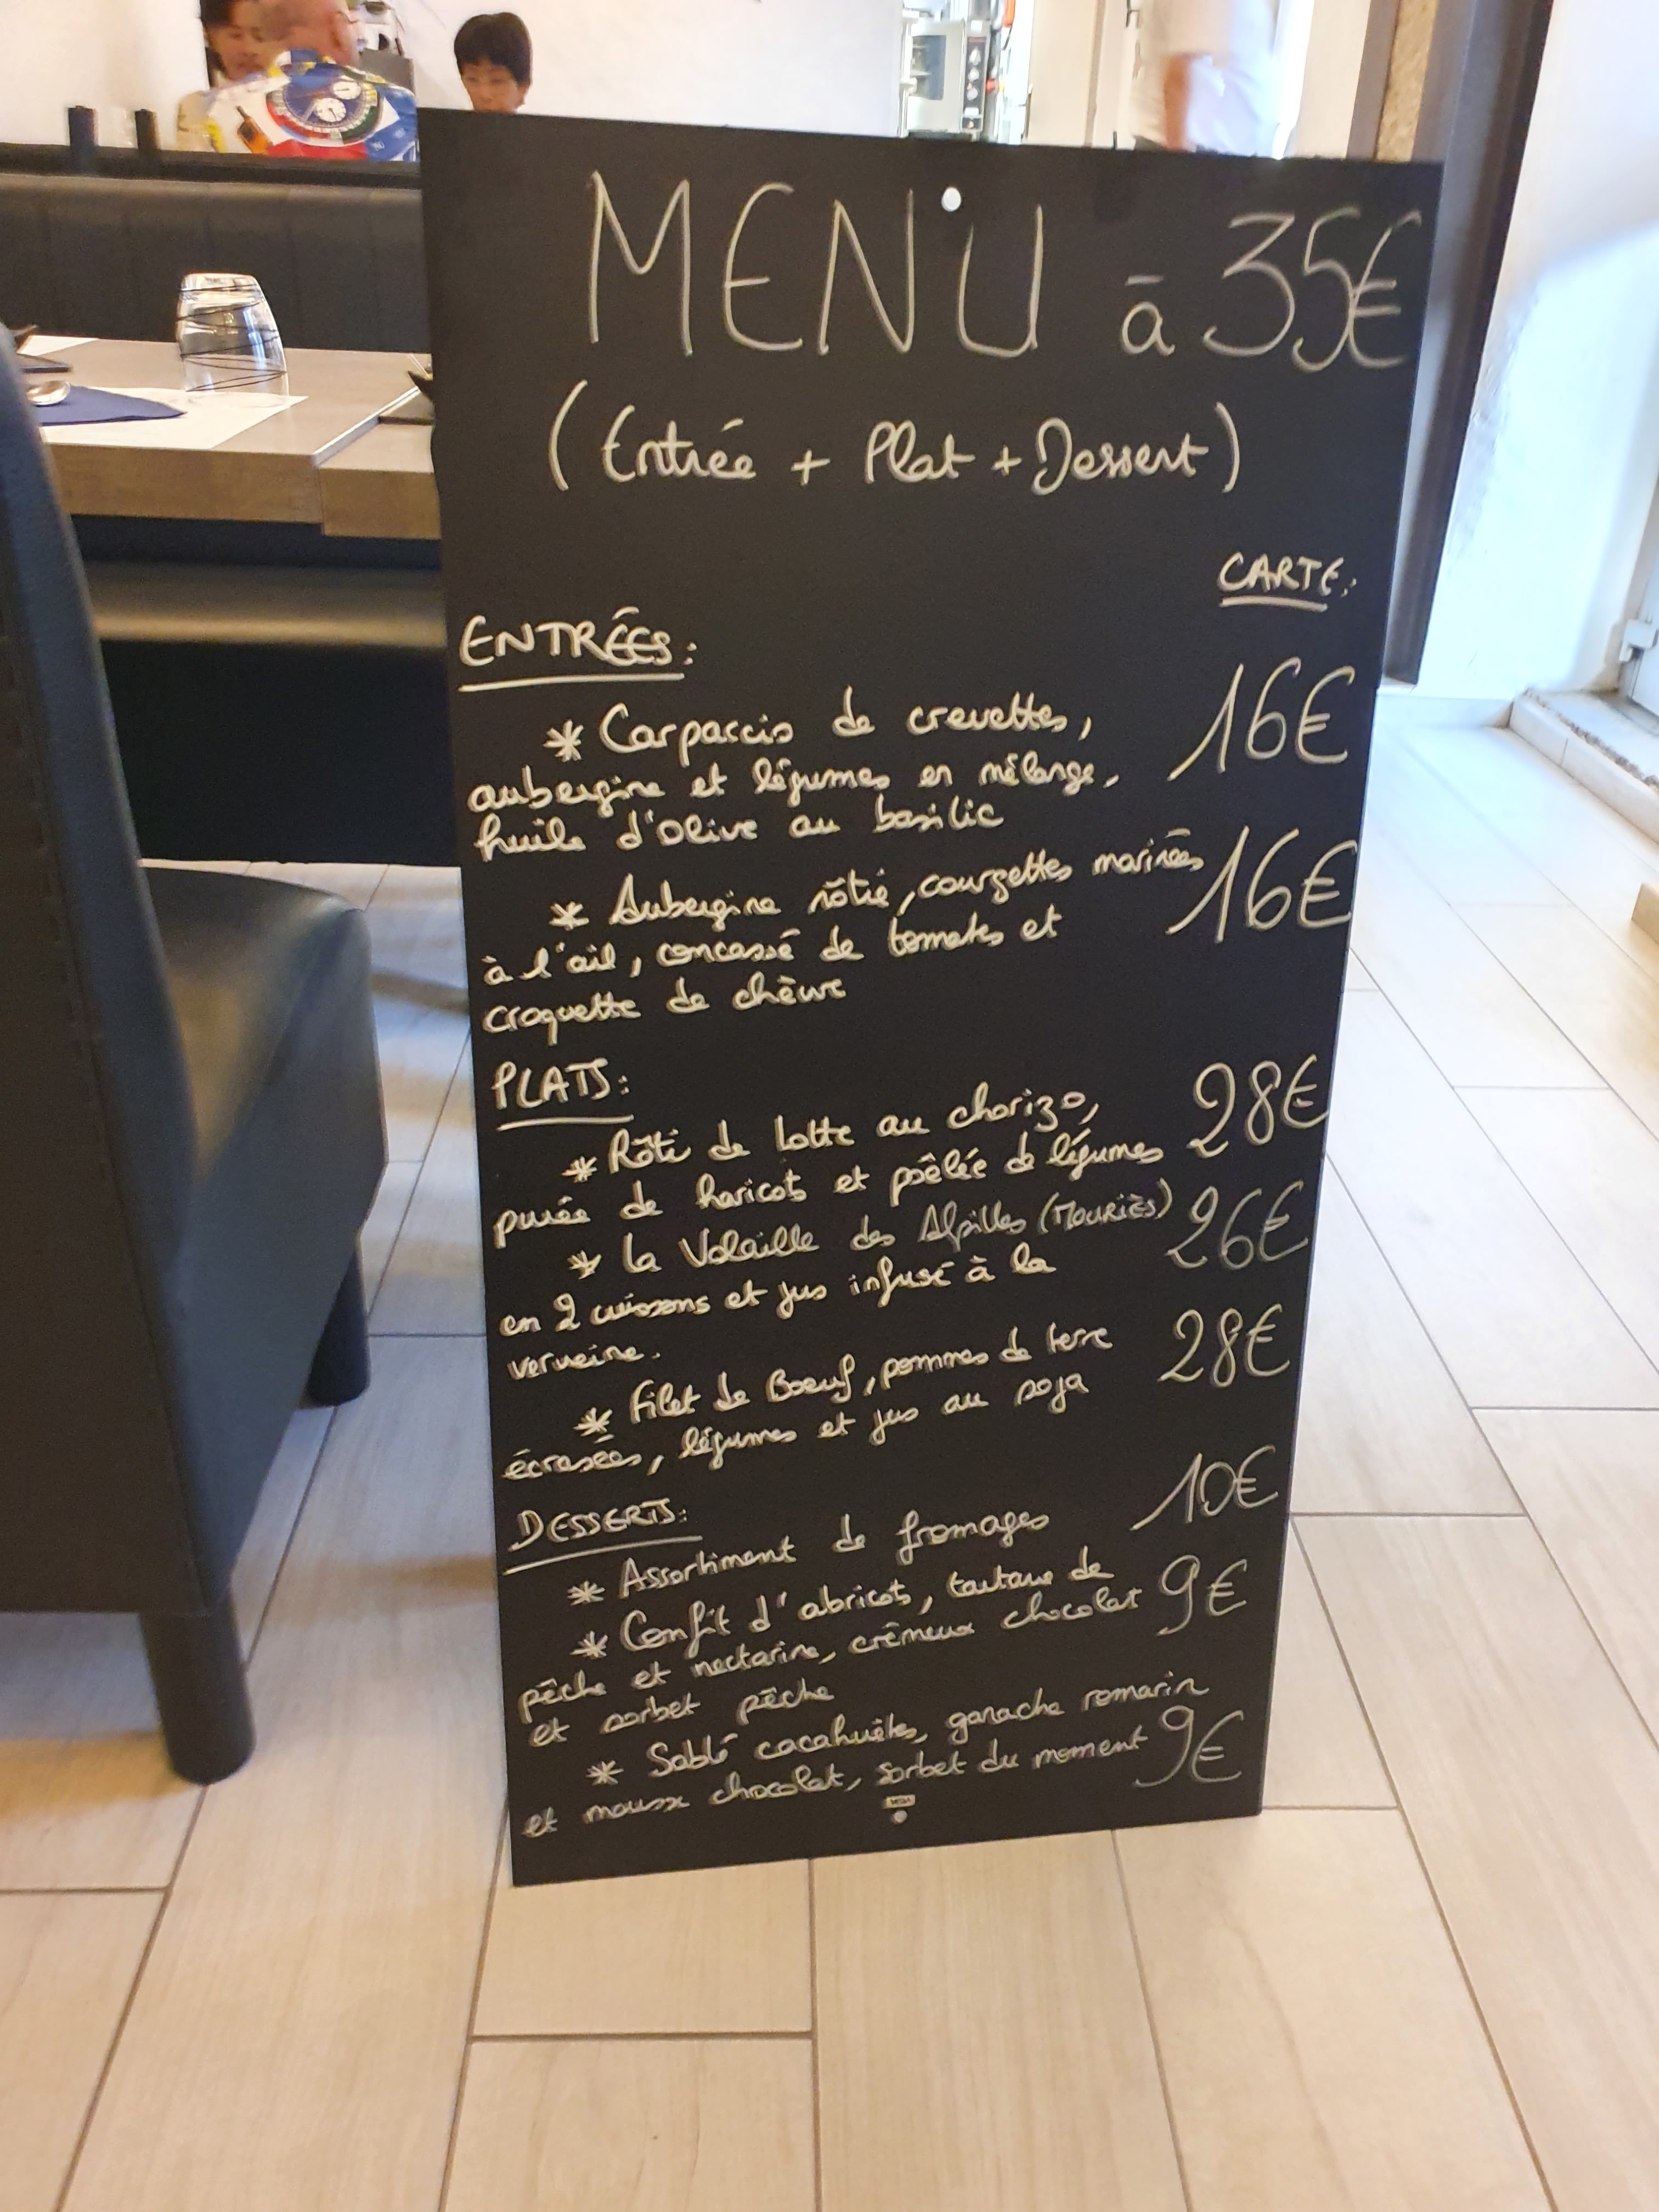 MENU à 35€
(Entrée + Plat + Dessert)
CARTE:
ENTRÉES:
* Carpaccio de crevettes, 16€
aubergine et légumes en mélange,
huile d'olive au basilic
* Aubergine rôtie, courgettes marinées 16€
à l'ail, concassé de tomates et
croquette de chèvre
PLATS:
* Rôti de lotte au chorizo, 28€
purée de haricots et poêlée de légumes
* La Volaille des Alpilles (MOURIÈS) 26€
en 2 cuissons et jus infusé à la
verveine.
* Filet de Boeuf, pommes de terre 28€
écrasées, légumes et jus au soja
DESSERTS:
* Assortiment de fromages 10€
* Confit d'abricots, tartare de
pêche et nectarine, crémeux chocolat 9€
et sorbet pêche
* Sablé cacahuètes, ganache romarin
et mousse chocolat, sorbet du moment 9€